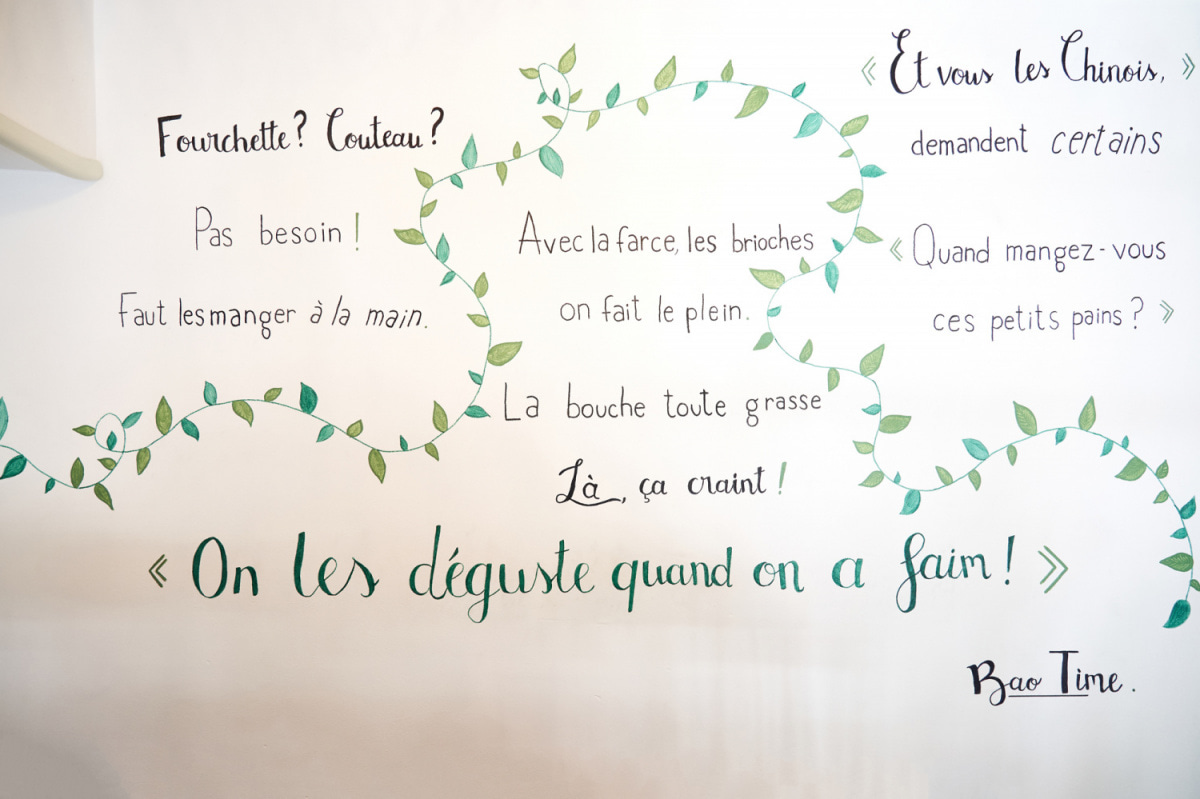 Fourchette? Couteau?
Pas besoin!
Faut les manger à la main.
Avec la farce, les brioches
on fait le plein.
La bouche toute grasse
Là, ça craint!
« Et vous les Chinois, »
demandent certains
« Quand mangez-vous
ces petits pains? »
« On les déguste quand on a faim! »
Bao Time.